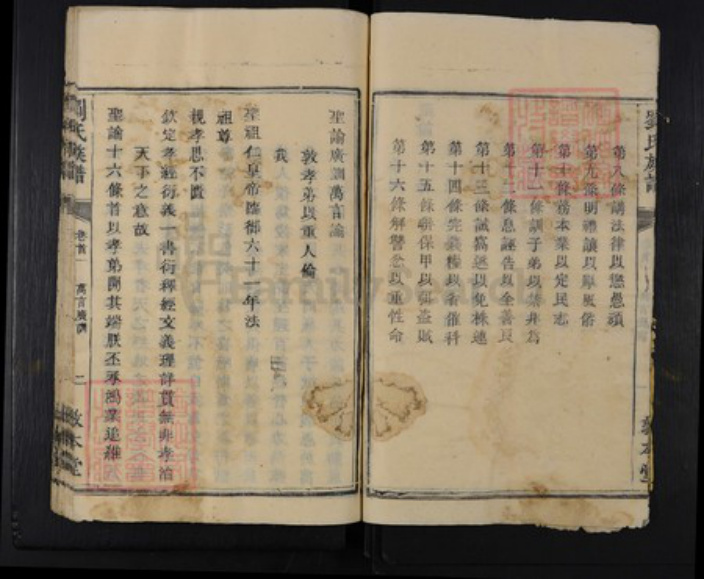 劉氏族譜
第八條講法律以儆愚頑
第九條明禮讓以厚風俗
第十條務本業以定民志
第十一條訓子弟以禁非為
第十二條息誣告以全善良
第十三條誡窩逃以免株連
第十四條完錢糧以省催科
第十五條聯保甲以弭盜賊
第十六條解讐忿以重性命
敦本堂
聖諭廣訓萬言諭
敦孝弟以重人倫
我
聖祖仁皇帝臨御六十一年法
祖尊
親孝思不匱
欽定孝經衍義一書衍釋經文義理詳貫無非孝治
天下之意故
聖諭十六條首以孝弟開其端朕丕承鴻業追維
劉氏族譜
卷首
萬言廣訓
二
敦本堂